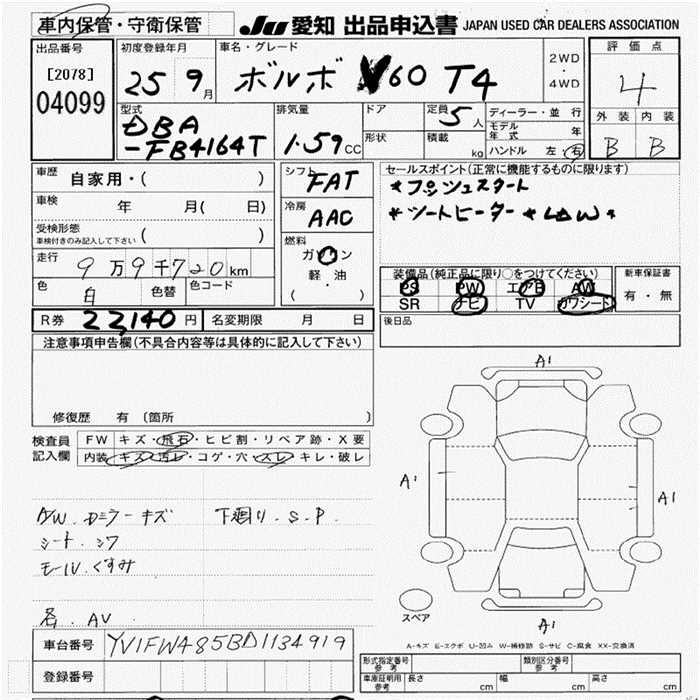 車内保管・守衛保管 JU 愛知 出品申込書 JAPAN USED CAR DEALERS ASSOCIATION
出品番号 初度登録年月 車名・グレード 2WD 評価点
[2078] 25 9月 ボルボ V60 T4 ・ 4
04099 4WD
型式 排気量 ドア 定員 5人 ディーラー・並行 外装 内装
DBA モデル年式 年
-FB4164T 1.59CC 形状 積載 kg ハンドル 左・右 B B
車歴 自家用・( ) シフト FAT セールスポイント(正常に機能するものに限ります)
*プッシュスタート
車検 年 月( 日) 冷房 AAC *シートヒーター *LDW*
受検形態
車検付きのみ記入して下さい ( ) 燃料
ガソリン
走行 9万9千720km 軽油 装備品(純正品に限り○をつけてください) 新車保証書
色 白 色替 色コード ( ・ ) PS PW エアB AW 有・無
SR ナビ TV カワシート
R券 22,140円 名変期限 月 日 後日品
注意事項申告欄(不具合内容等は具体的に記入して下さい)
修復歴 有 〔箇所
検査員 FW キズ・飛石・ヒビ割・リペア跡・X要
記入欄 内装 キズ・汚レ・コゲ・穴・スレ・キレ・破レ
A1
A1
A1
A1
A/W. Dミラーキズ 下廻り. S. P.
シート. シワ
モール. くすみ
各. AV
スペア
車台番号 YV1FW485BD1134919
A-キズ E-エクボ U-凹み W-補修跡 S-サビ C-腐食 XX-交換済
登録番号 形式指定番号 参考 類別区分番号 参考
車庫証明用 参考 長さ cm 幅 cm 高さ cm